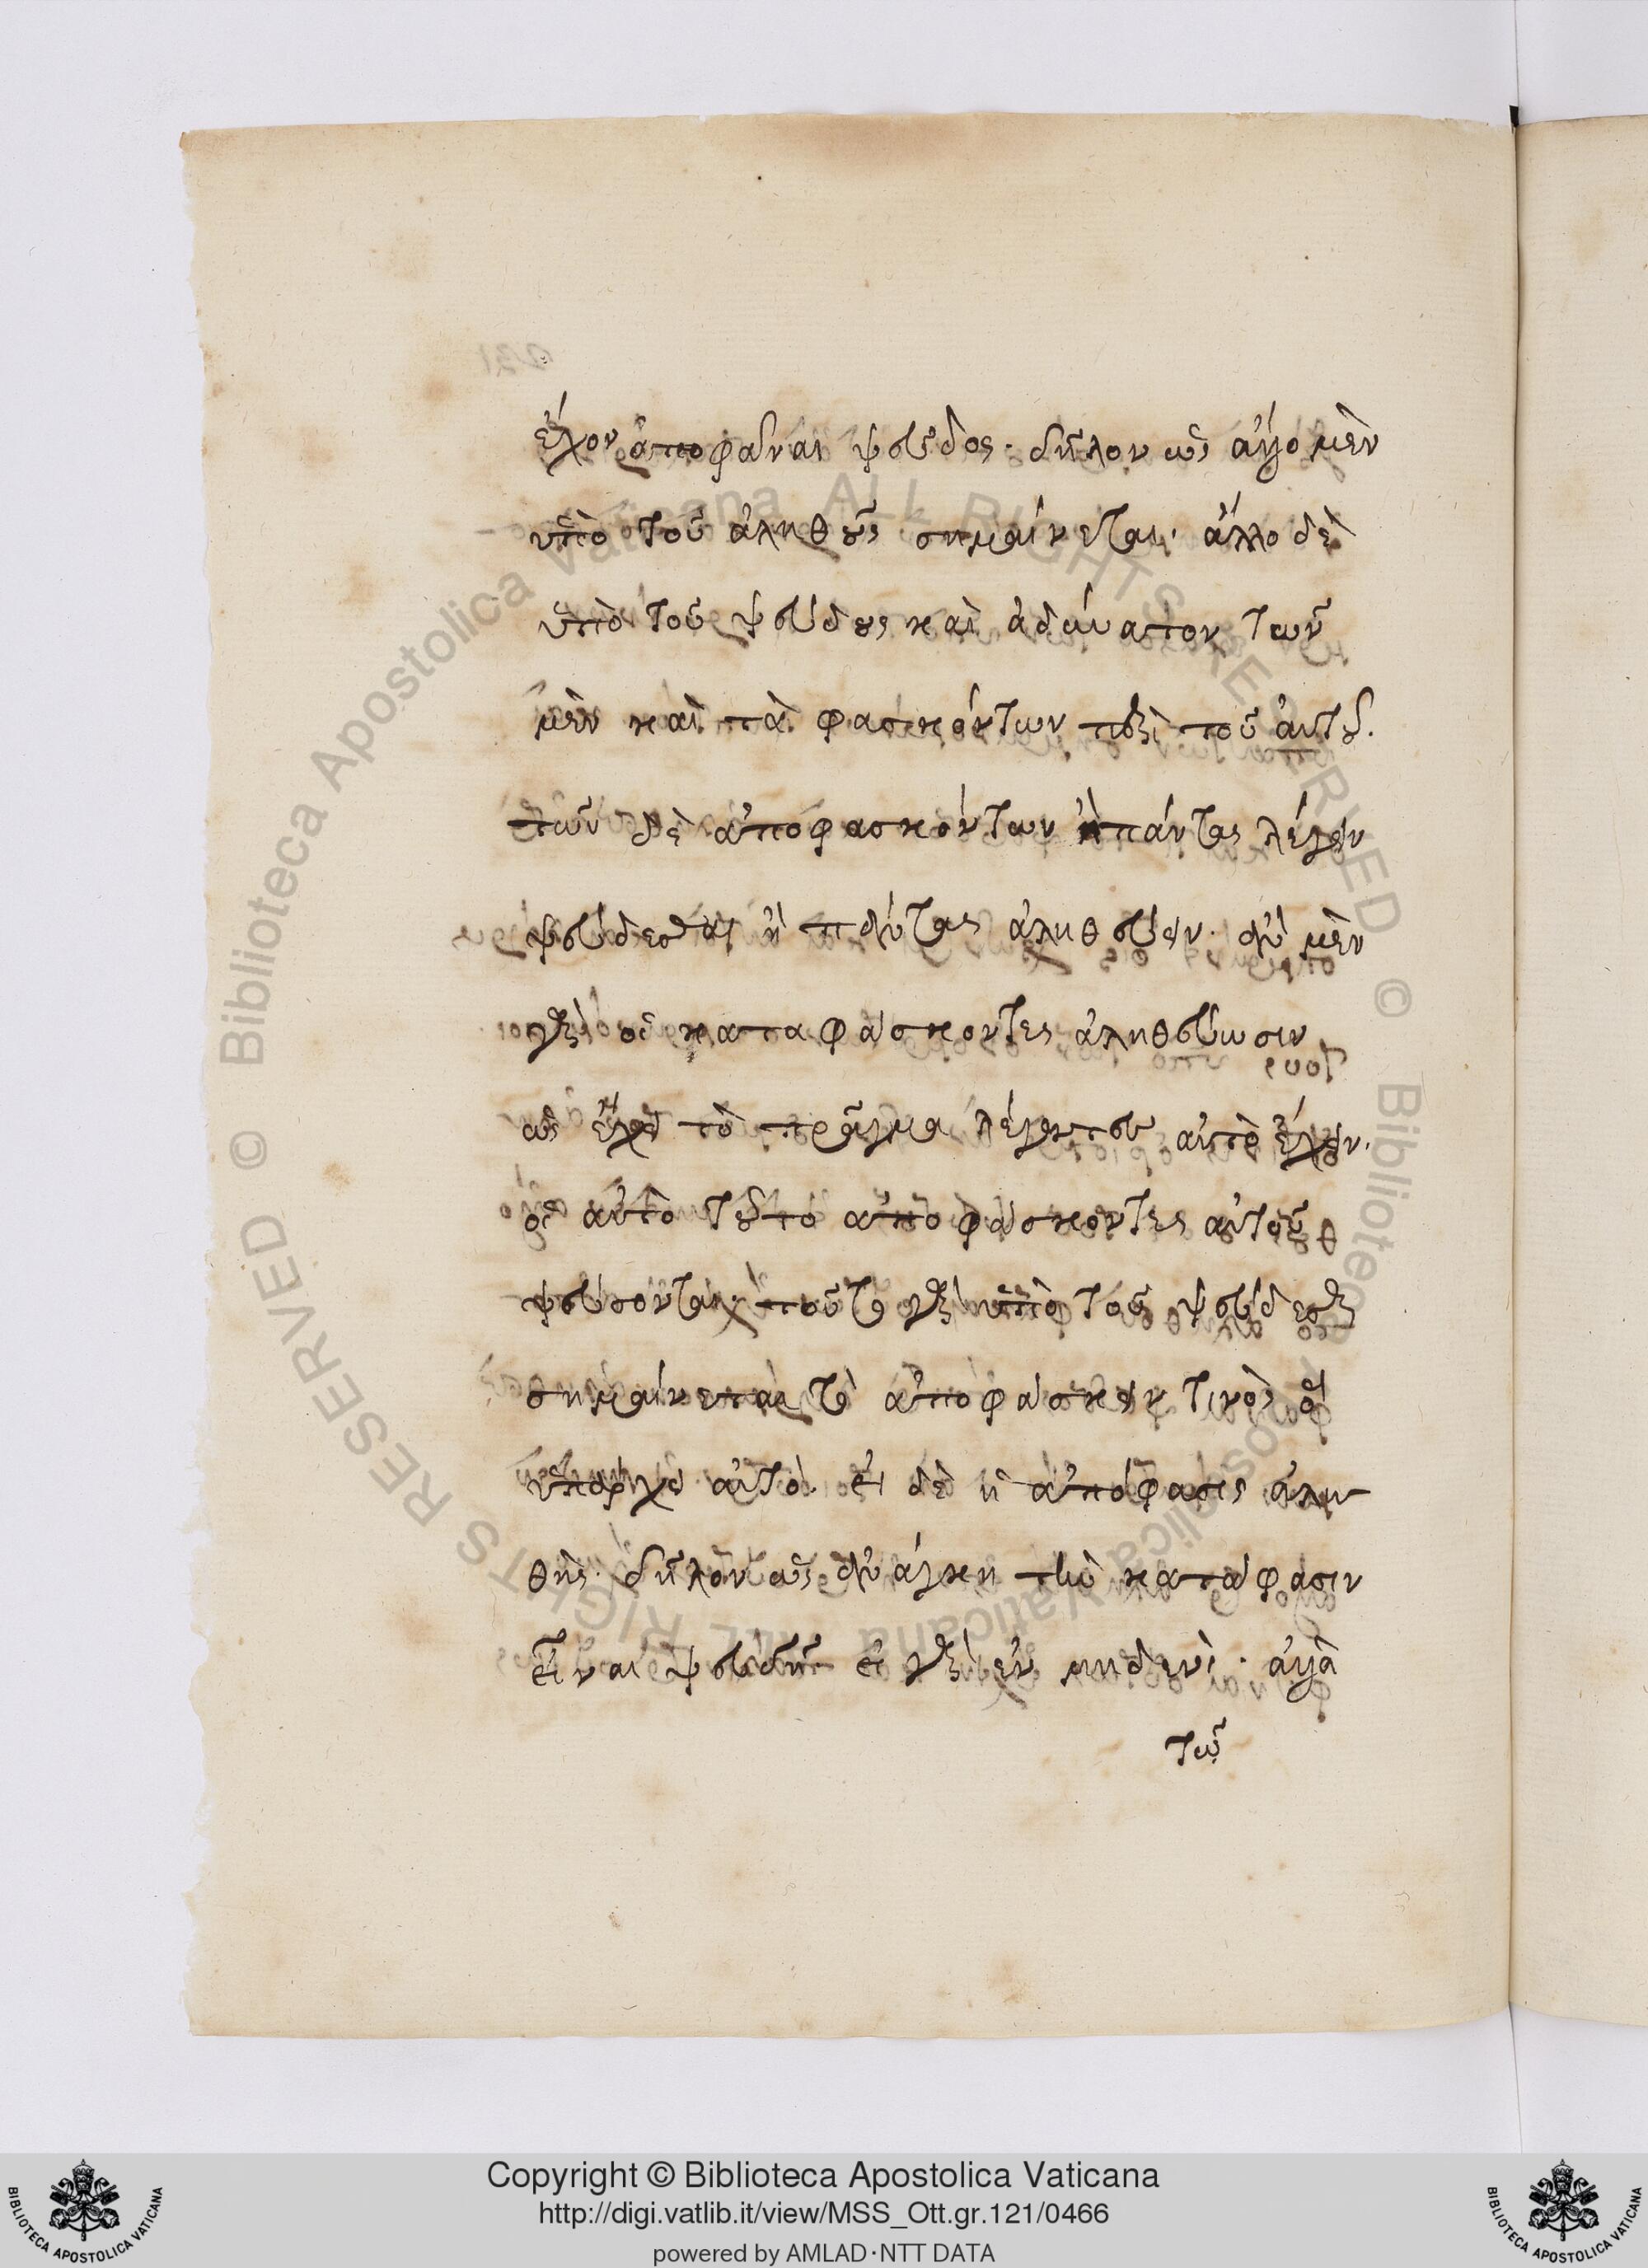 ἔχον ἀποφάναι ψεῦδος· δῆλον ὡς ἄλλο μὲν
ὑπὸ τοῦ ἀληθοῦς σημαίνεται· ἄλλο δὲ
ὑπὸ τοῦ ψεύδους καὶ ἀδύνατον τῶν
μὲν φασκόντων περὶ τοῦ αὐτοῦ.
τῶν δὲ ἀποφασκόντων ἢ πάντας λέγειν
ψεύδεσθαι ἢ πάντας ἀληθεύειν. ἂν μὲν
γὰρ οἱ καταφάσκοντες ἀληθεύωσιν
ὡς ἔχει τὸ πρᾶγμα λέγοντες αὐτὸ ἔχειν.
οἱ αὐτὸ τοῦτο ἀποφάσκοντες αὐτοῦ
ψεύσονται· τοῦτο γὰρ ὑπὸ τοῦ ψεύδεσθαι
σημαίνεται τὸ ἀποφάσκειν τινὸς ὃ
ὑπάρχει αὐτῷ. εἰ δὲ ἡ ἀπόφασις ἀλη
θής. δῆλον ὡς ἀνάγκη τὴν κατάφασιν
εἶναι ψευδῆ εἰ γὰρ ἐν μηδενὶ. ἀλλὰ
τῷ
Copyright © Biblioteca Apostolica Vaticana
http://digi.vatlib.it/view/MSS_Ott.gr.121/0466
powered by AMLAD·NTT DATA
BIBLIOTECA APOSTOLICA VATICANA
BIBLIOTECA APOSTOLICA VATICANA
© Biblioteca Apostolica Vaticana ALL RIGHTS RESERVED © Biblioteca Apostolica Vaticana ALL RIGHTS RESERVED